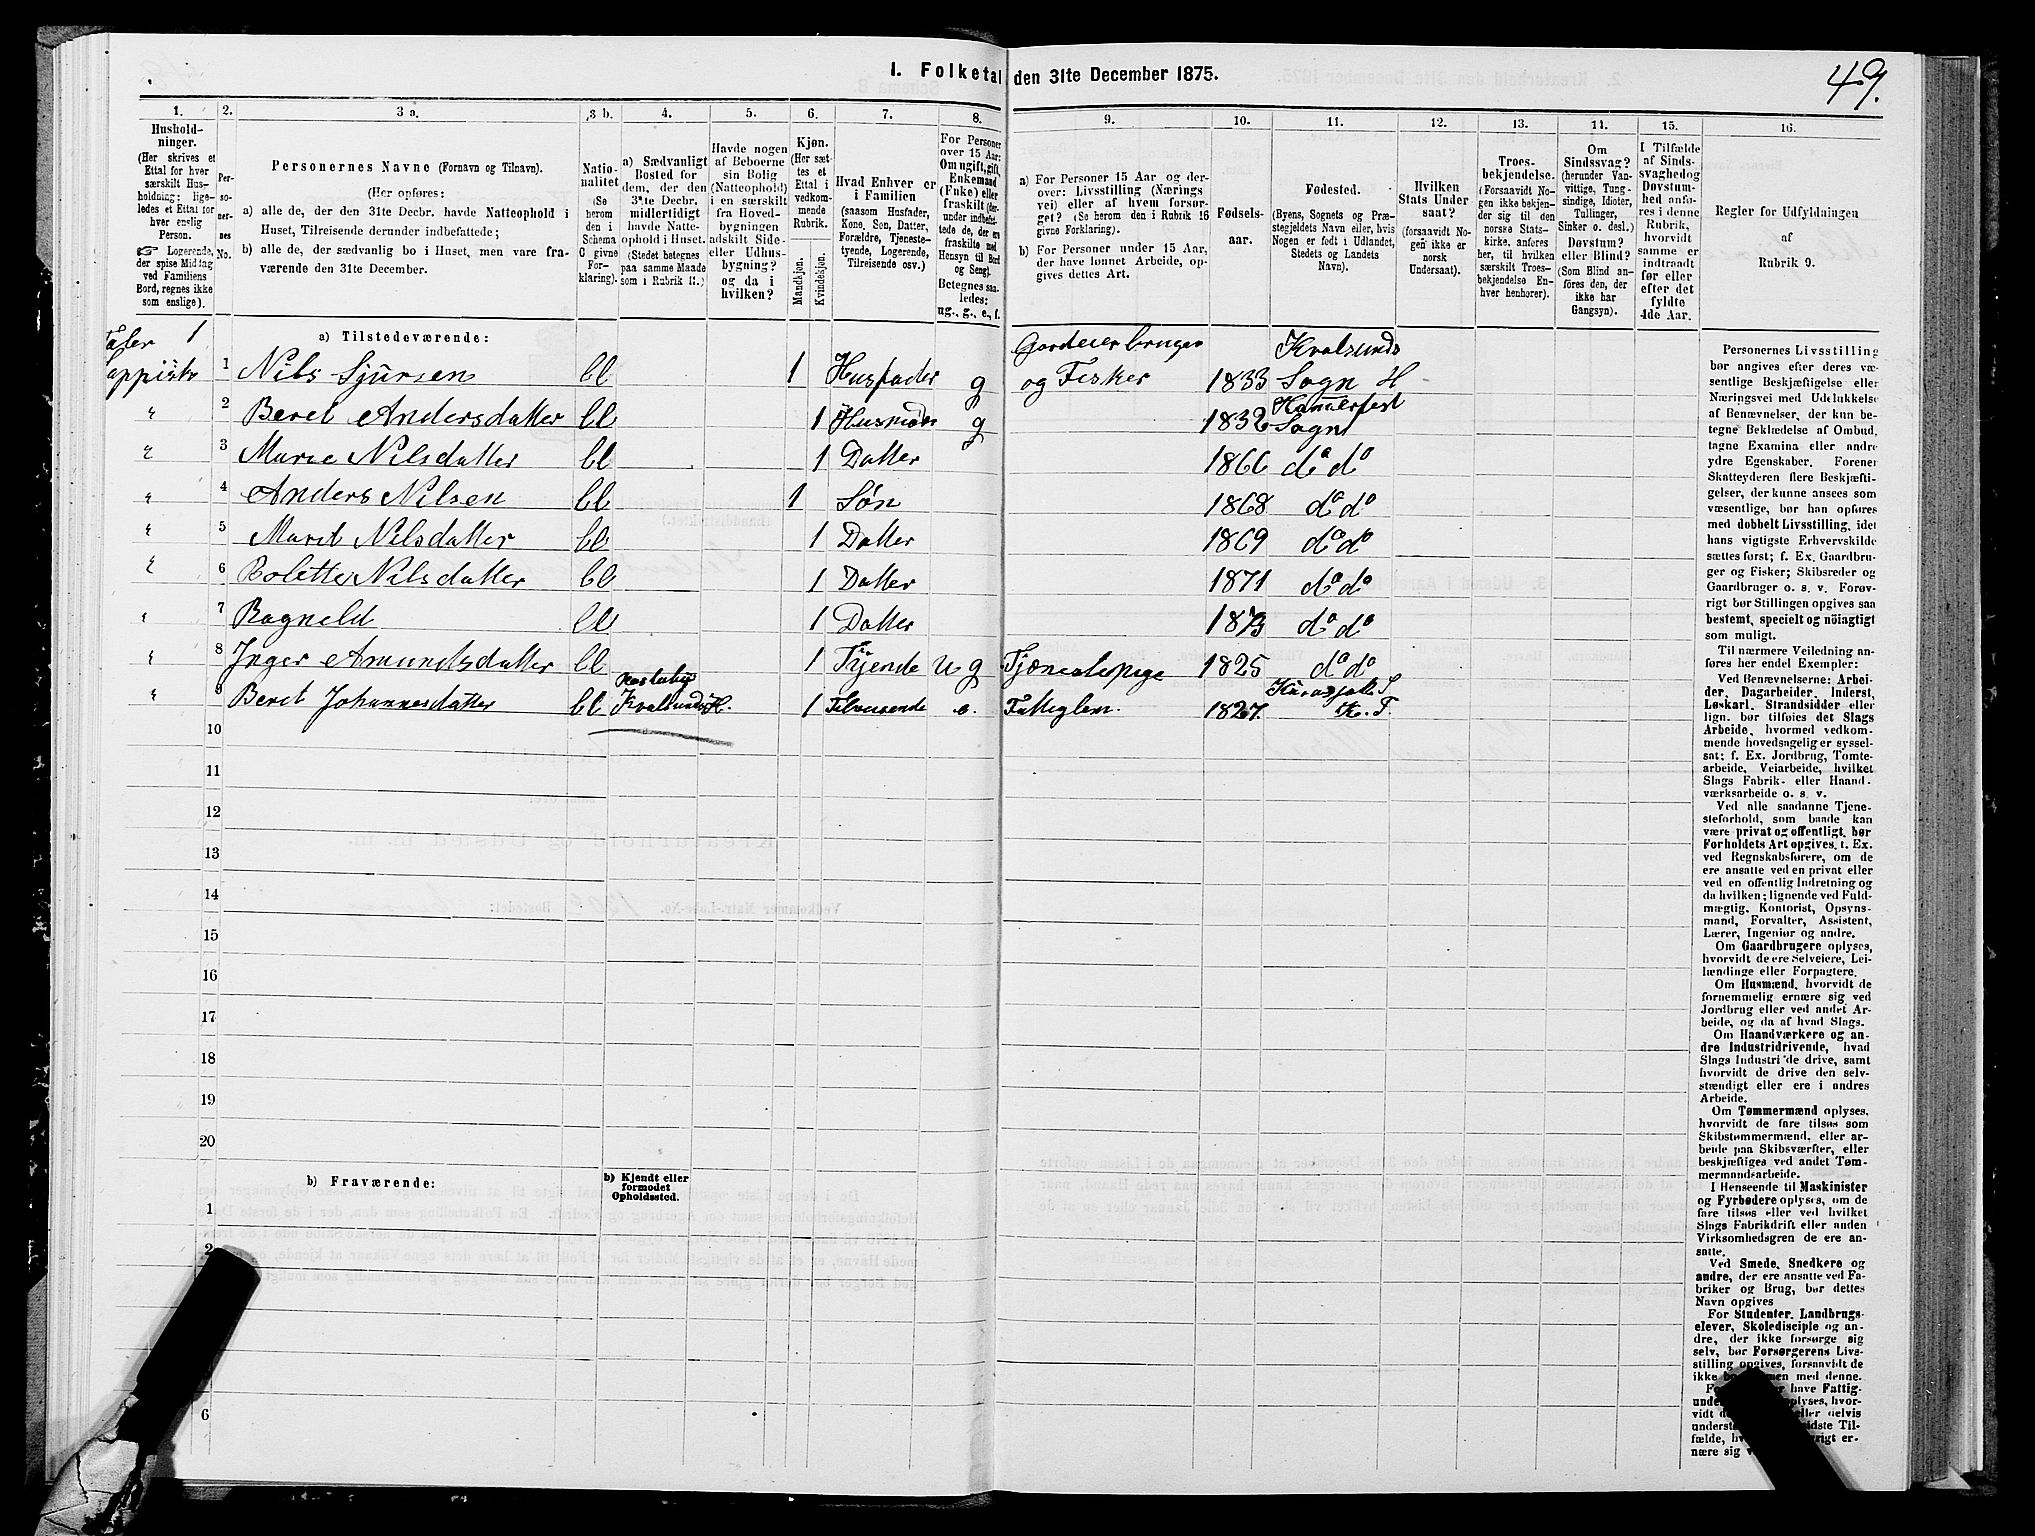 1. Folketal den 31te December 1875.
49.
1.
Hushold-
ninger.
(Her skrives et
Ettal for hver
særskilt Hus-
holdning; lige-
ledes et Ettal for
hver enslig
Person.
☞ Logerende,
der spise Middag
ved Familiens
Bord, regnes ikke
som enslige).
2.
Per-
so-
ner-
nes
No.
3 a.
Personernes Navne (Fornavn og Tilnavn).
(Her opføres:
a) alle de, der den 31te Decbr. havde Natteophold i
Huset, Tilreisende derunder indbefattede;
b) alle de, der sædvanlig bo i Huset, men vare fra-
værende den 31te December.
3 b.
Natio-
nalitet
(Se
herom
den i
Schema
C givne
For-
klaring).
4.
a) Sædvanligt
Bosted for
dem, der den
31te Decbr.
midlertidigt
havde Natte-
ophold i Huset.
(Stedet betegnes
paa samme Maade
som i Rubrik 11.)
5.
Havde nogen
af Beboerne
sin Bolig
(Natteophold)
i en særskilt
fra Hoved-
bygningen
adskilt Side-
eller Udhus-
bygning?
og da i
hvilken?
6.
Kjøn.
(Her sæt-
tes et
Ettal i
vedkom-
mende
Rubrik.
Mandkjøn.
Kvindekjøn.
7.
Hvad Enhver er
i Familien
(saasom Husfader,
Kone, Søn, Datter,
Forældre, Tjeneste-
tyende, Logerende,
Tilreisende osv.)
8.
For Personer
over 15 Aar:
Om ugift, gift,
Enkemand
(Enke) eller
fraskilt (der-
under indbefat-
tede de, der ere
fraskilte med
Hensyn til Bord
og Seng).
Betegnes saa-
ledes:
ug., g., e., f.
9.
a) For Personer 15 Aar og der-
over: Livsstilling (Nærings
vei) eller af hvem forsør-
get? (Se herom den i Rubrik 16
givne Forklaring).
b) For Personer under 15 Aar,
der have lønnet Arbeide, op-
gives dettes Art.
10.
Fødsels-
aar.
11.
Fødested.
(Byens, Sognets og Præ-
stegjeldets Navn eller, hvis
Nogen er født i Udlandet,
Stedets og Landets
Navn).
12.
Hvilken
Stats Under
saat?
(forsaavidt No-
gen ikke er
norsk
Undersaat).
13.
Troes-
bekjendelse.
(Forsaavidt No-
gen ikke bekjen-
der sig til den
norske Stats-
kirke, anføres
her, til hvilken
særskilt Troes-
bekjendelse En-
hver henhører).
14.
Om
Sindssvag?
(herunder Van-
vittige, Tung-
sindige, Idioter,
Tullinger,
Sinker o. desl.)
Døvstum?
eller Blind?
(Som Blind an-
føres den, der
ikke har
Gangsyn).
15.
I Tilfælde
af Sinds-
svaghed og
Døvstum-
hed anfø-
res i denne
Rubrik,
hvorvidt
samme er
indtraadt
før eller
efter det
fyldte
4de Aar.
16.
Regler for Udfyldningen
af
Rubrik 9.
a) Tilstedeværende:
1
1 Nils Sjursen bl 1 Husfader g Gardeierbruger og Fisker 1833 Kvalsunds Sogn H
" 2 Beret Andersdatter bl 1 Husmoder g 1832 Hammerfest Sogn
" 3 Marie Nilsdatter bl 1 Datter 1866 do do
" 4 Anders Nilsen bl 1 Søn 1868 do do
" 5 Maret Nilsdatter bl 1 Datter 1869 do do
" 6 Bolette Nilsdatter bl 1 Datter 1871 do do
" 7 Ragneld bl 1 Datter 1873 do do
" 8 Inger Amundsdatter bl 1 Tyende u g Tjenestepige 1825 do do
" 9 Beret Johannesdatter bl Kvalsund H. 1 Tilreisende e. Fattiglem 1827. K. T.
10
11
12
13
14
15
16
17
18
19
20
b) Fraværende:
b) Kjendt eller
formodet
Opholdssted.
1
2
6
Personernes Livsstilling
bør angives efter deres væ-
sentlige Beskjæftigelse eller
Næringsvei med Udelukkelse
af Benævnelser, der kun be-
tegne Beklædelse af Ombud,
tagne Examina eller andre
ydre Egenskaber. Forener
Skatteyderen flere Beskjæfti-
gelser, der kunne ansees som
væsentlige, bør han opføres
med dobbelt Livsstilling, idet
hans vigtigste Erhvervskilde
sættes først; f. Ex. Gaardbru-
ger og Fisker; Skibsreder og
Gaardbruger o. s. v. Forøv-
rigt bør Stillingen opgives saa
bestemt, specielt og nøiagtigt
som muligt.
Til nærmere Veiledning an-
føres her endel Exempler:
Ved Benævnelserne: Arbei-
der, Dagarbeider, Inderst,
Løskarl, Strandsidder eller
lign. bør tilføies det Slags
Arbeide, hvormed vedkom-
mende hovedsagelig er syssel-
sat; f. Ex. Jordbrug, Tomte-
arbeide, Veiarbeide, hvilket
Slags Fabrik- eller Haand-
værksarbeide o. s. v.
Ved alle saadanne Tjene-
steforhold, som baade kan
være privat og offentligt, bør
Forholdets Art opgives, f. Ex.
ved Regnskabsførere, om de
ere ansatte ved en privat eller
ved en offentlig Indretning og
da hvilken; lignende ved Fuld-
mægtig, Kontorist, Opsyns-
mand, Forvalter, Assistent,
Lærer, Ingeniør og andre.
Om Gaardbrugere oplyses,
hvorvidt de ere Selveiere, Lei-
lændinge eller Forpagtere.
Om Husmænd, hvorvidt de
fornemmelig ernære sig ved
Jordbrug eller ved andet Ar-
beide, og da af hvad Slags.
Om Haandværkere og an-
dre Industridrivende, hvad
Slags Industri de drive, samt
hvorvidt de drive den selv-
stændigt eller ere i andres
Arbeide.
Om Tømmermænd oplyses,
hvorvidt de fare tilsøs som
Skibstømmermænd, eller ar-
beide paa Skibsværfter, eller
beskjæftiges ved andet Tøm-
mermandsarbeide.
I Henseende til Maskinister
og Fyrbødere oplyses, om de
fare tilsøs eller ved hvilket
Slags Fabrikdrift eller anden
Virksomhedsgren de ere an-
satte.
Ved Smede, Snedkere og
andre, der ere ansatte ved Fa-
briker og Brug, bør dettes
Navn opgives
For Studenter, Landbrugs-
elever, Skoledisciple og an-
dre, der ikke forsørge sig
selv, bør Forsørgerens Livs-
stilling opgives, forsaavidt de
ikke bo sammen med denne.
have Fattig-